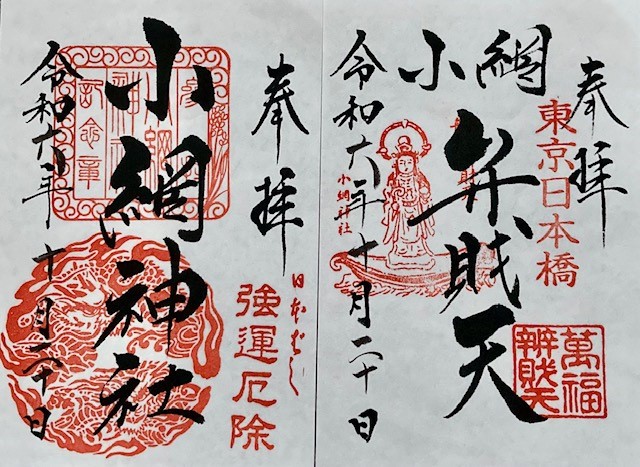 奉拝
東京日本橋
萬福
辨財天
小網
弁財天
小網神社
令和六年十月二十日
奉拝
日本ばし
強運厄除
小網神社
令和六年十月二十日